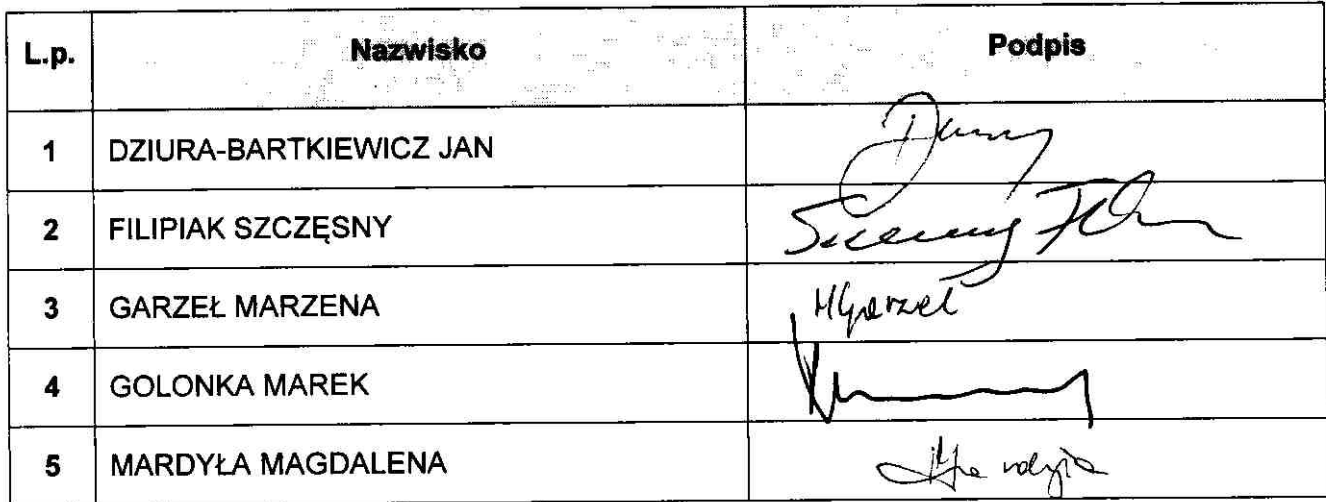 L.p. Nazwisko Podpis
1 DZIURA-BARTKIEWICZ JAN
2 FILIPIAK SZCZĘSNY
3 GARZEŁ MARZENA MGarzeł
4 GOLONKA MAREK
5 MARDYŁA MAGDALENA